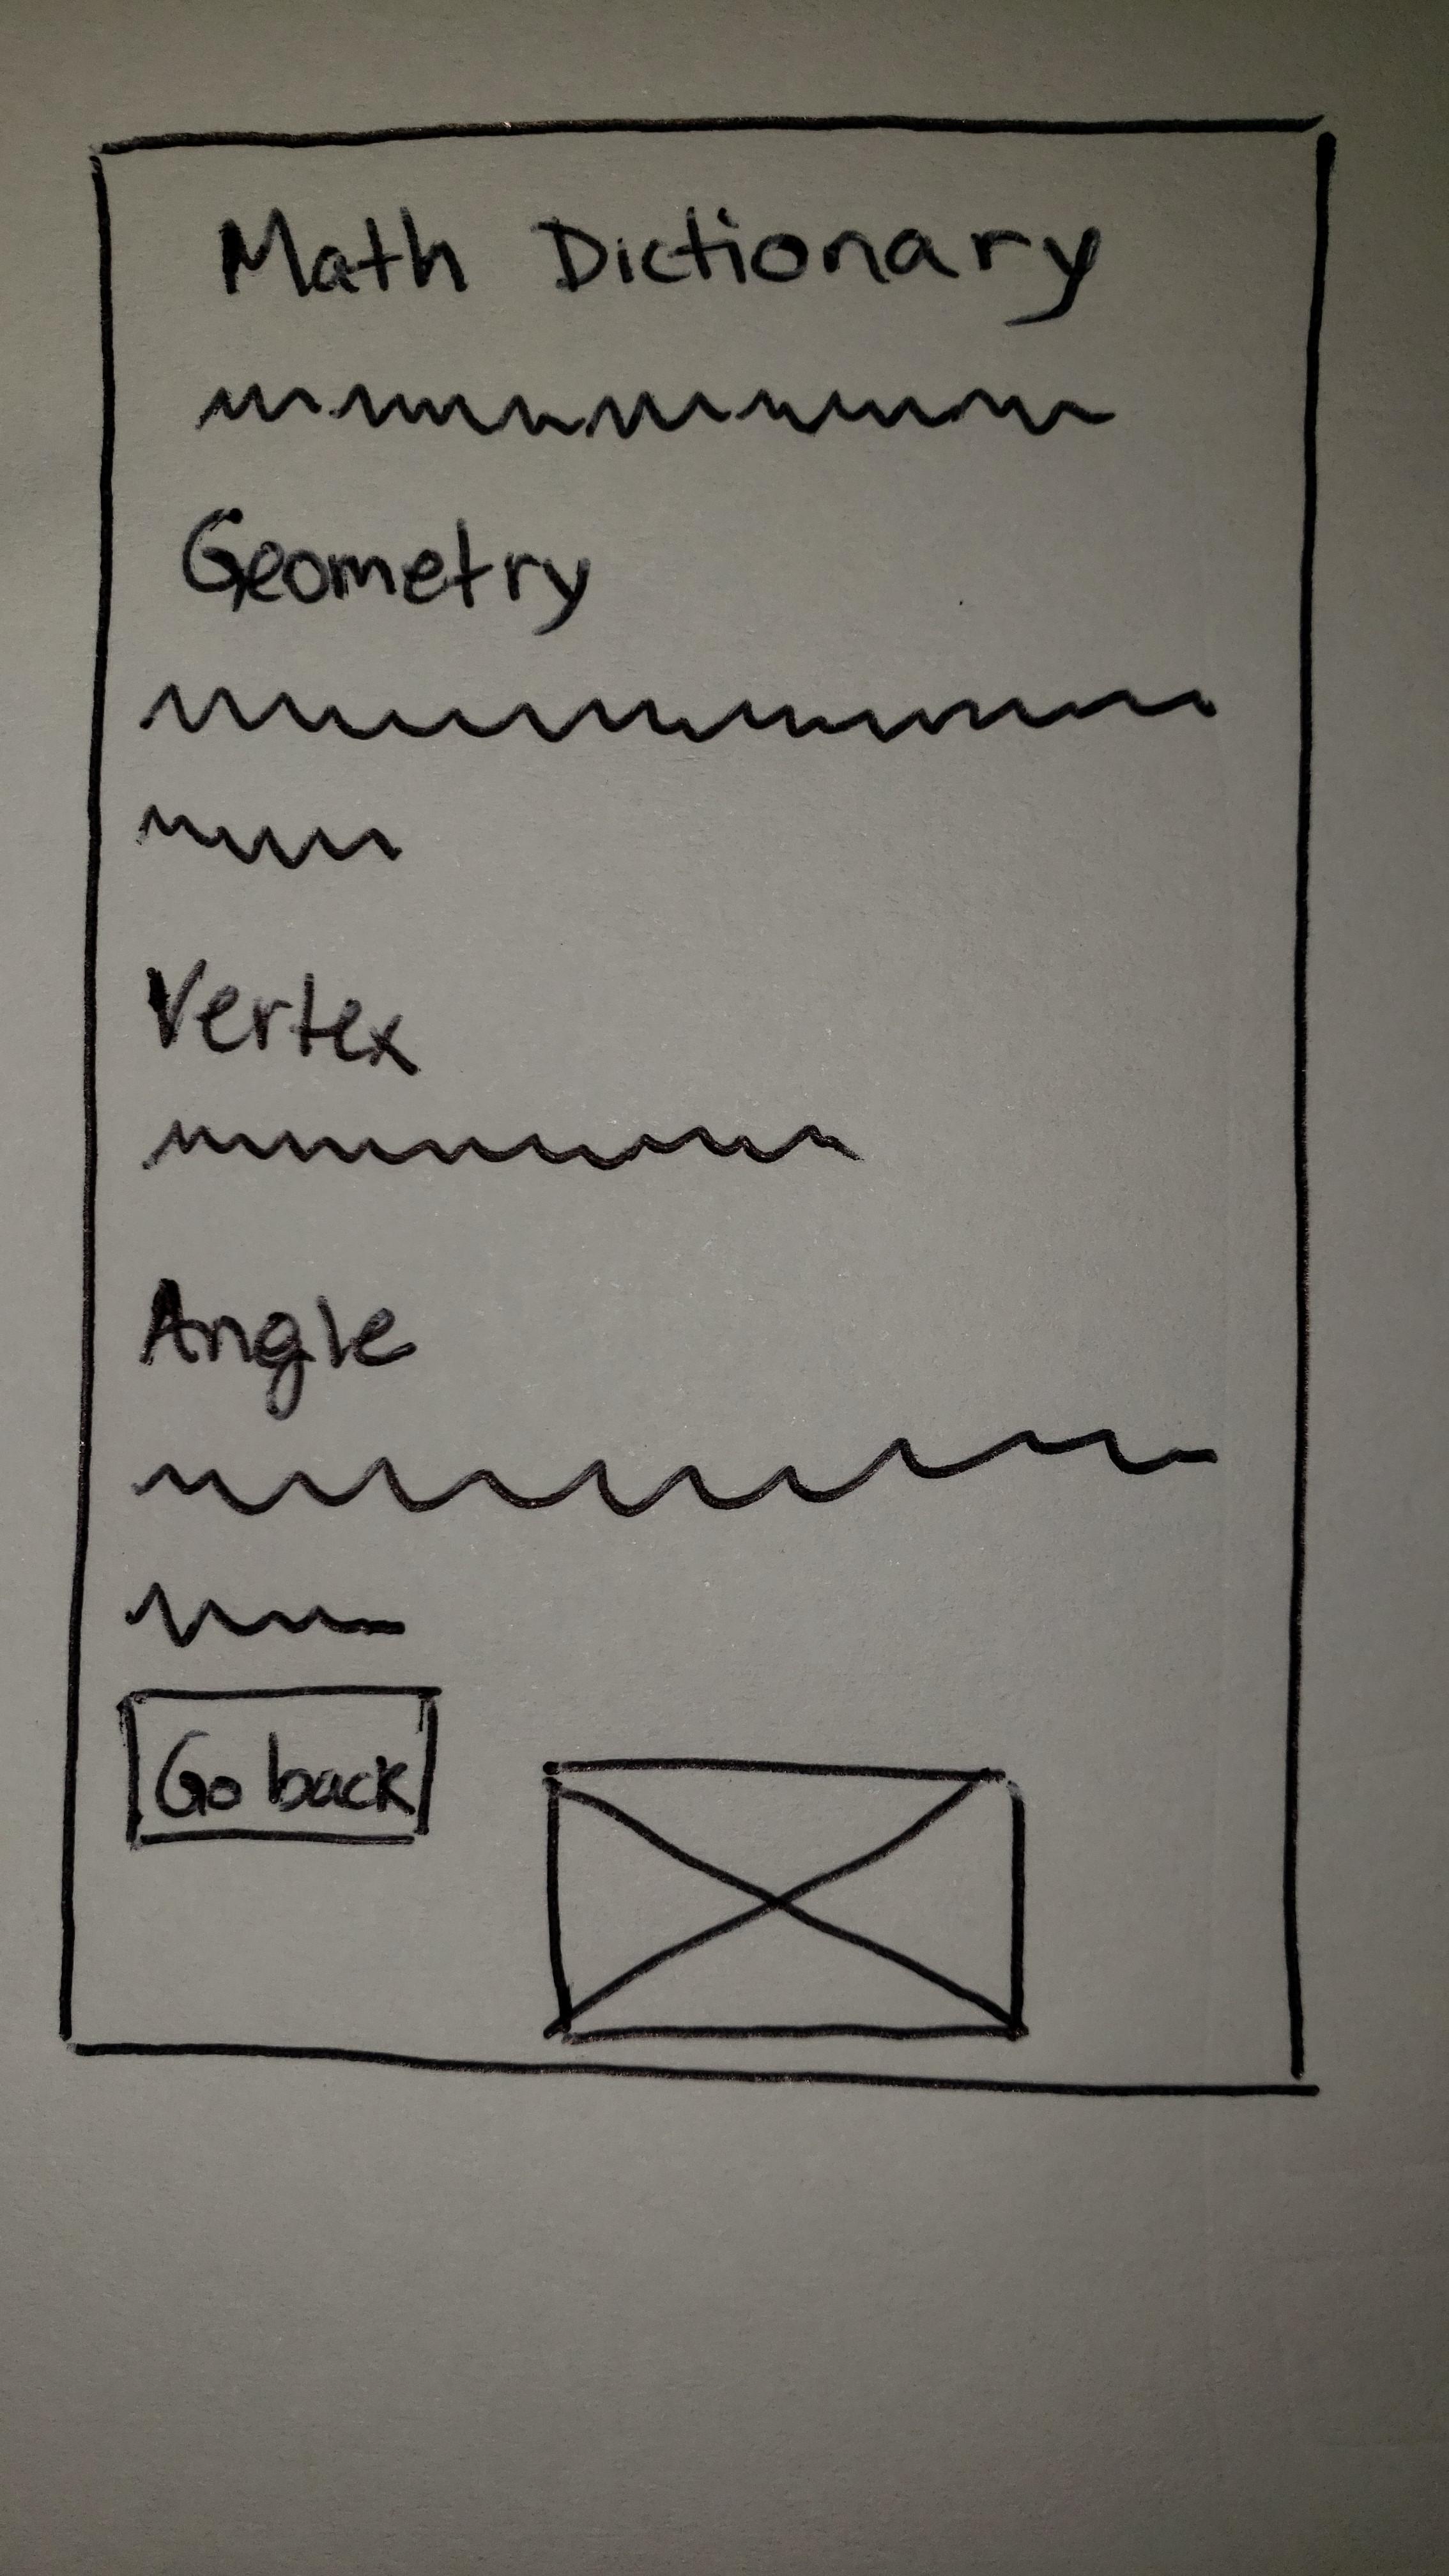 Math Dictionary
Geometry
Vertex
Angle
Go back